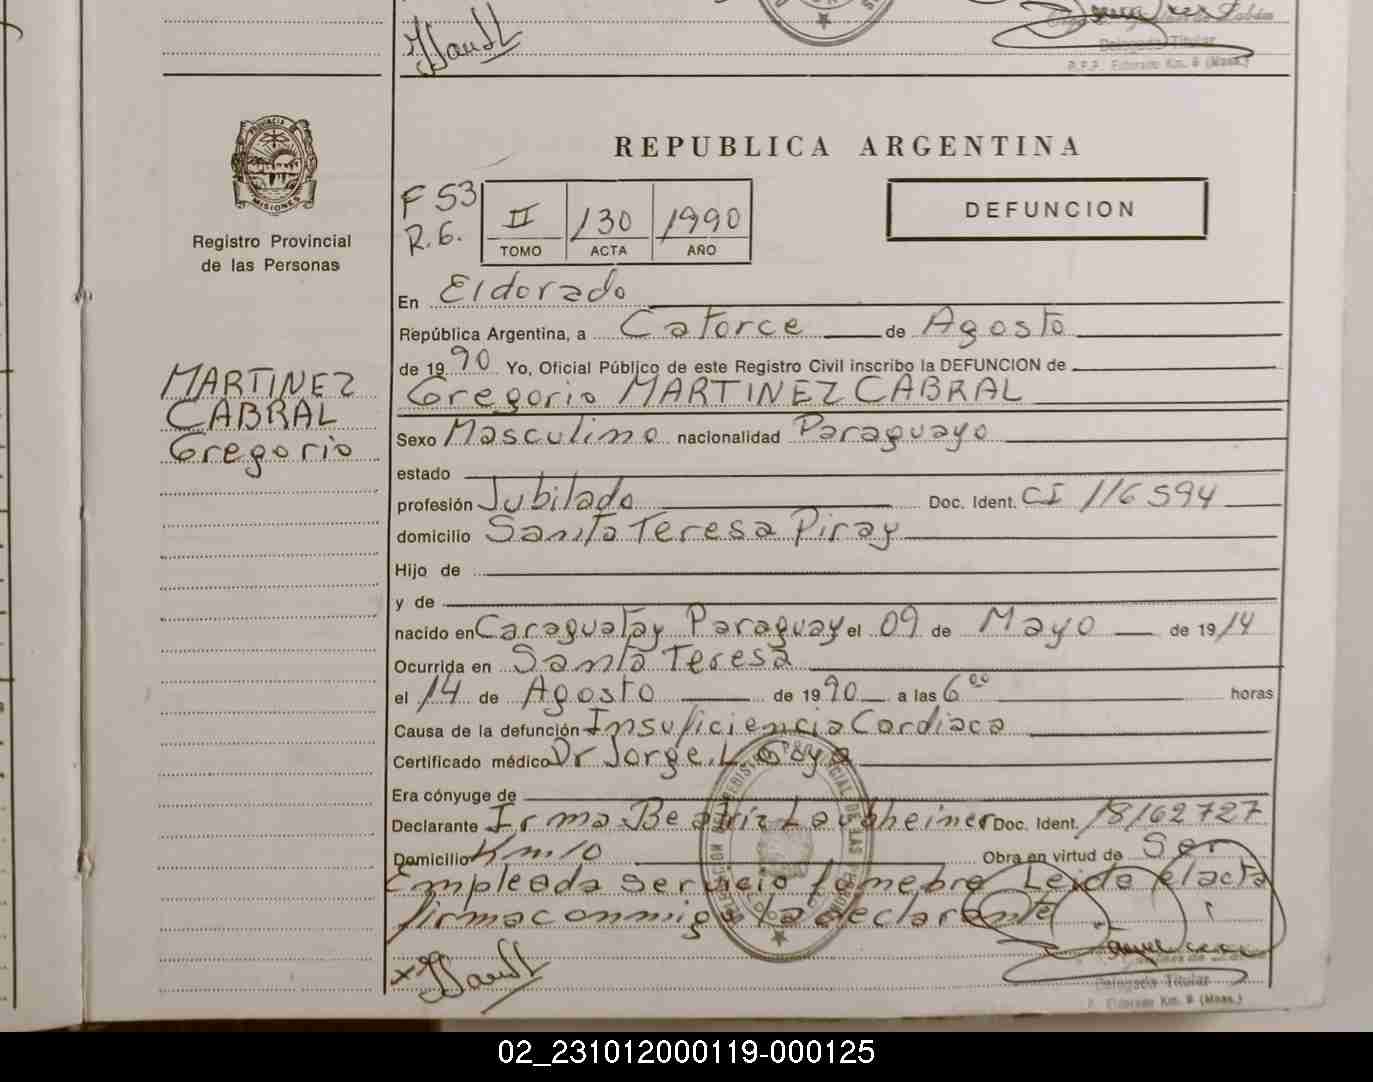 Delegada Titular
R.P.P. Eldorado Km. 9 (Mnes.)
PROVINCIA DE
MISIONES
Registro Provincial
de las Personas
MARTINEZ
CABRAL
Gregorio
REPUBLICA ARGENTINA
F 53
R.G.
II 130 1990
TOMO ACTA AÑO
DEFUNCION
En Eldorado
República Argentina, a Catorce de Agosto
de 1990 Yo, Oficial Público de este Registro Civil inscribo la DEFUNCION de
Gregorio MARTINEZ CABRAL
Sexo Masculino nacionalidad Paraguayo
estado
profesión Jubilado Doc. Ident. CI 116594
domicilio Santa Teresa Piray
Hijo de
y de
nacido en Caraguatay Paraguay el 09 de Mayo de 1914
Ocurrida en Santa Teresa
el 14 de Agosto de 1990 a las 6 00 horas
Causa de la defunción Insuficiencia Cardiaca
Certificado médico Dr Jorge L. Goya
Era cónyuge de
Declarante Irma Beatriz Laubheimer Doc. Ident. 18162727
Domicilio Km 10 Obra en virtud de Ser
Empleada servicio fúnebre Leida el acta
firma conmigo la declarante
Delegada Titular
Eldorado Km. 9 (Mnes.)
02_231012000119-000125